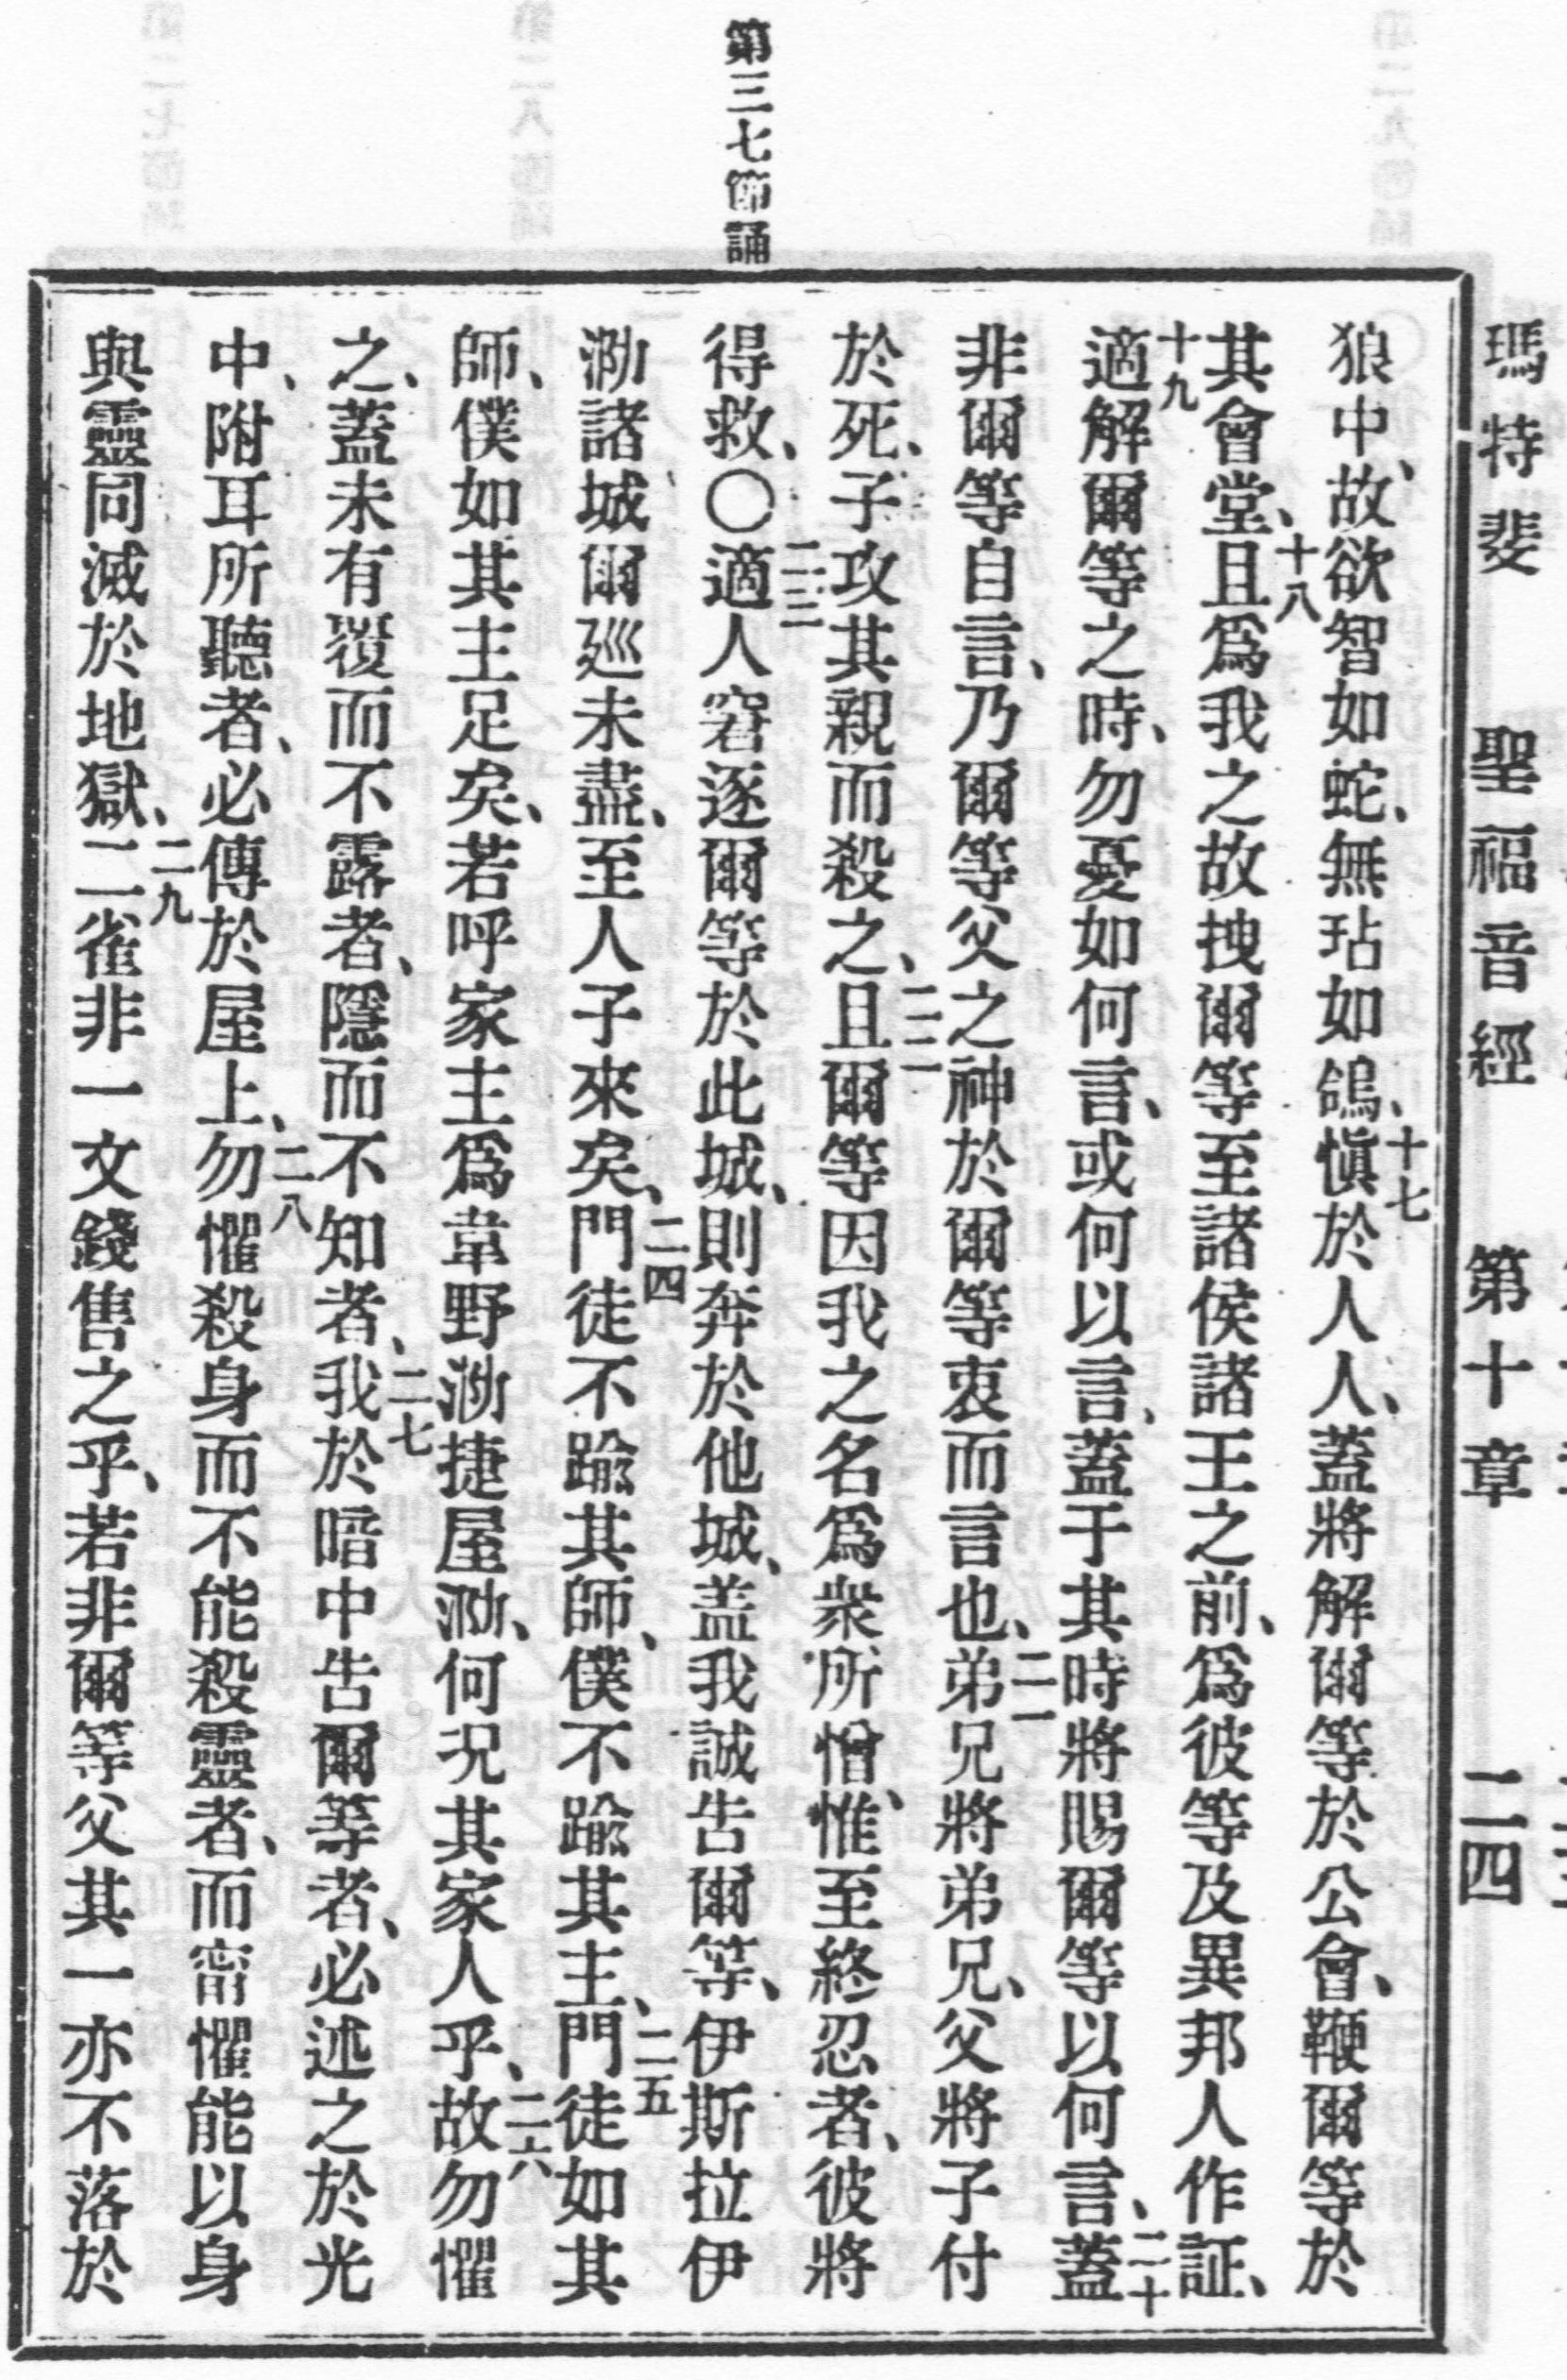 瑪特斐 聖福音經 第十章 二四
第三七節誦
狼中、故欲智如蛇、無玷如鴿、十七愼於人人、蓋將解爾等於公會、鞭爾等於
其會堂、十八且爲我之故拽爾等至諸侯諸王之前、爲彼等及異邦人作証、
十九適解爾等之時、勿憂如何言、或何以言、蓋于其時將賜爾等以何言、二十蓋
非爾等自言、乃爾等父之神於爾等衷而言也、二一弟兄將弟兄、父將子付
於死、子攻其親而殺之、二二且爾等因我之名爲衆所憎、惟至終忍者、彼將
得救、〇二三適人窘逐爾等於此城、則奔於他城、盖我誠告爾等、伊斯拉伊
泐諸城爾廵未盡、至人子來矣、二四門徒不踰其師、僕不踰其主、二五門徒如其
師、僕如其主足矣、若呼家主爲韋野泐捷屋泐、何况其家人乎、二六故勿懼
之、蓋未有覆而不露者、隱而不知者、二七我於暗中告爾等者、必述之於光
中、附耳所聽者、必傳於屋上、二八勿懼殺身而不能殺靈者、而甯懼能以身
與靈同滅於地獄、二九二雀非一文錢售之乎、若非爾等父其一亦不落於